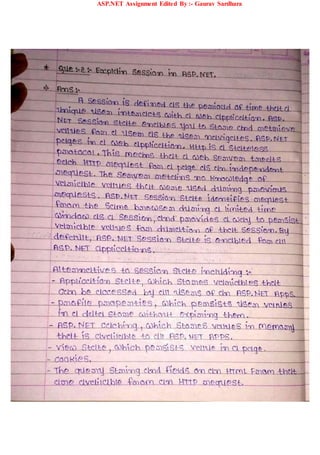 ASP.NET Assignment Edited By :- Gaurav Sardhara
* Que :- 2 :- Explain Session in ASP.NET.
* Ans :-
A Session is defined as the period of time that a
unique user interacts with a web application. ASP.
NET Session State enables you to store and retrieve
values for a user as the user navigates ASP.NET
pages in a web application. HTTP is a stateless
protocol. This means that a web server treats
each HTTP request for a page as an independent
request. The server retains no knowledge of
variable values that were used during previous
requests. ASP.NET Session State identifies request
from the same browser during a limited time
window as a session, and provides a way to persist
variable values for duration of that session. By
default, ASP.NET Session State is enabled for all
ASP.NET applications.
Alternatives to Session State including :-
- Application State, which stores variables that
can be accessed by all users of an ASP.NET Apps.
- profile properties, which persists user values
in a data store without expiring them.
- ASP.NET Caching, which stores values in memory
that is available to all ASP.NET APPS.
- View State, which persists value in a page.
- COOKIES.
- The query string and fields on an HTML form that
are available from an HTTP request.